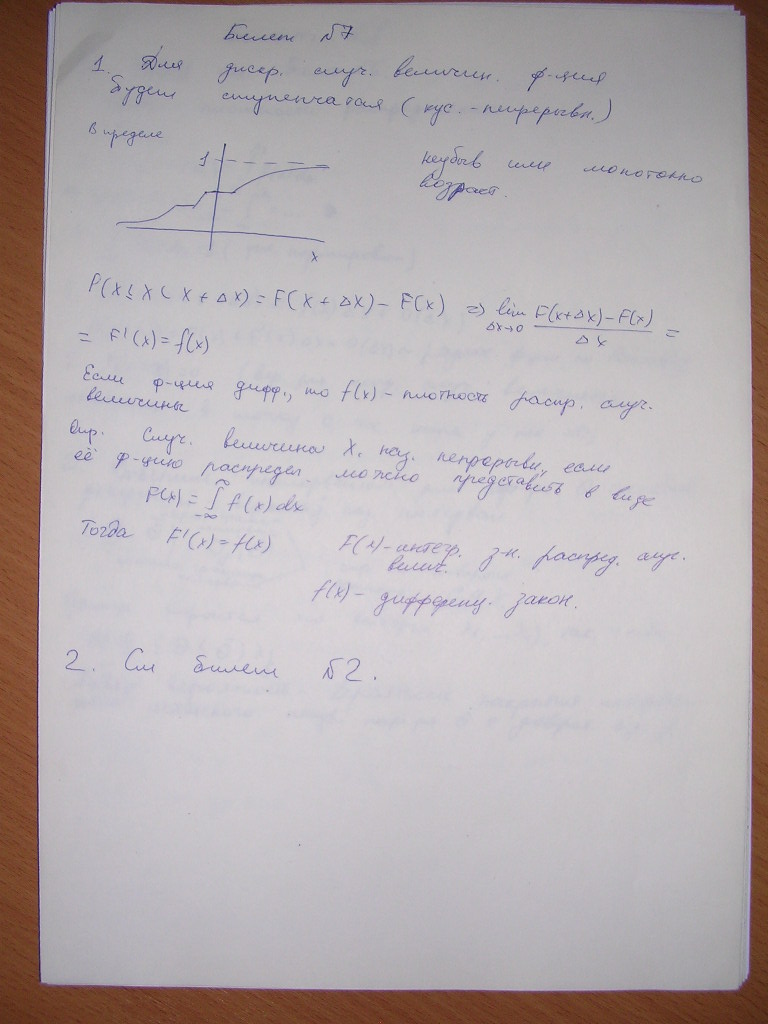 Билет №7
1. Для дискр. случ. величин. ф-ция
будет ступенчатая (кус.-непрерывн.)
В пределе
1
неубыв или монотонно
возраст.
x
P(x ≤ X < x + Δx) = F(x + Δx) - F(x) => lim Δx→0 (F(x+Δx) - F(x)) / Δx =
= F'(x) = f(x)
Если ф-ция дифф., то f(x) - плотность распр. случ.
величины
Опр. Случ. величина X, наз. непрорывн, если
её ф-цию распредел. можно представить в виде
F(x) = ∫_{-∞}^{∞} f(x)dx
Тогда F'(x) = f(x)
F(x) - интегр. з-н. распред. случ.
велич.
f(x) - дифференц. закон.
2. См билет №2.